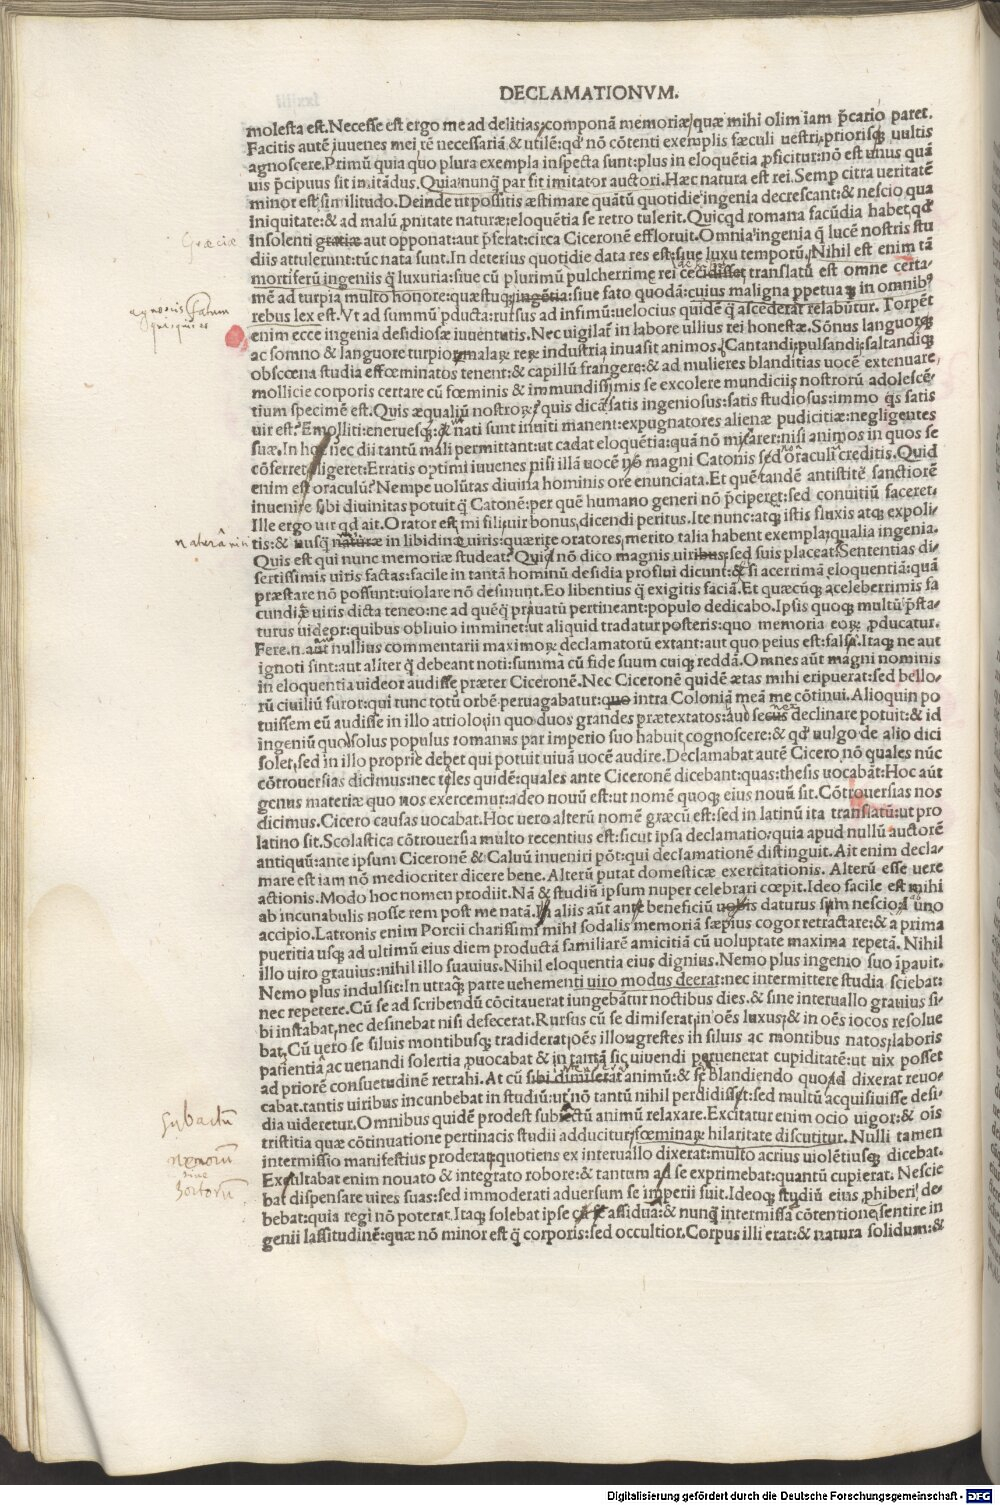 DECLAMATIONVM.
molesta est. Necesse est ergo me ad delitias componā memoriæ quæ mihi olim iam p̄cario paret.
Facitis autē iuuenes mei rē necessariā & utilē: qd' nō cōtenti exemplis sæculi uestri, priorisq; uultis
agnoscere. Primū quia quo plura exempla inspecta sunt: plus in eloquētia ꝓficitur: nō est unus quā
uis p̄cipuus sit imitādus. Quia nunq̄ par fit imitator auctori. Hæc natura est rei. Semp citra ueritatē
minor est similitudo. Deinde ut possitis æstimare quātū quotidie ingenia decrescant: & nescio qua
iniquitate: & ad malū ꝓnitate naturæ: eloquētia se retro tulerit. Quicqd romana facūdia habet, qd'
Græciæ
insolenti gratiæ aut opponat: aut p̄ferat: circa Ciceronē effloruit. Omnia ingenia q̄ lucē nostris stu
diis attulerunt: tūc nata sunt. In deterius quotidie data res est: siue luxu temporū. Nihil est enim tā
mortiferū ingeniis q̄ luxuria: siue cū plurimū pulcherrimę rei cecidisset translatū est omne certa-
mē ad turpia multo honore: quæstuq; ingētia: siue fato quodā: cuius maligna ꝑpetuaꝗ in omnib⁹
rebus lex est. Vt ad summū ꝑducta: rursus ad infimū: uelocius quidē q̄ ascēderat relabūtur. Torpēt
enim ecce ingenia desidiosæ iuuentutis. Nec uigilat̄ in labore ullius rei honestæ. Sōnus languorq;
ac somno & languore turpior malaꝝ reꝝ industria inuasit animos. Cantandi, pulsandi, saltandiq;
obscœna studia effœminatos tenent: & capillū frangere: & ad mulieres blanditias uocē extenuare,
mollicie corporis certare cū fœminis & immundissimis se excolere mundiciis nostrorū adolescē-
tium specimē est. Quis æqualiū nostroꝝ? quis dicā satis ingeniosus: satis studiosus: immo q̄s satis
uir est? Emolliti: eneruesq;: q̄ nati sunt inuiti manent: expugnatores alienæ pudicitiæ: negligentes
suæ. In hos nec dii tantū mali permittant: ut cadat eloquētia: quā nō mirarer: nisi animos in quos se
cōferret eligeret: Erratis optimi iuuenes nisi illā uocē nō magni Catonis sed oraculi creditis. Quid
enim est oraculū? Nempe uolūtas diuina hominis ore enunciata. Et quē tandē antistitē sanctiorē
inuenire sibi diuinitas potuit q̄ Catonē: per quē humano generi nō p̄ciperet: sed conuitiū faceret.
Ille ergo uir qd ait. Orator est mi fili, uir bonus, dicendi peritus. Ite nunc: atq; istis fluxis atq; expoli-
tis: & nusq̄ naturæ in libidinæ uiris: quærite oratores, merito talia habent exempla: qualia ingenia.
Quis est qui nunc memoriæ studeat? Quid nō dico magnis uiribus: sed suis placeat? Sententias di-
sertissimis uiris factas: facile in tantā hominū desidia pro sui dicunt: & si acerrimā eloquentiā: quā
præstare nō possunt: uiolare nō desinunt. Eo libentius q̄ exigitis faciā. Et quæcūq; a celeberrimis fa
cundiæ uiris dicta teneo: ne ad quēq̄ priuatū pertineant: populo dedicabo. Ipsis quoq; multū p̄sta-
turus uideor: quibus obliuio imminet: ut aliquid tradatur posteris: quo memoria eoꝝ ꝓducatur.
Fere .n. aut nullius commentarii maximoꝝ declamatorū extant: aut quo peius est: falsa. Itaq; ne aut
ignoti sint: aut aliter q̄ debeant noti: summa cū fide suum cuiq; reddā. Omnes aūt magni nominis
in eloquentia uideor audisse præter Ciceronē. Nec Ciceronē quidē ætas mihi eripuerat: sed bello-
rū ciuiliū furor: qui tunc totū orbē peruagabatur: quo intra Coloniā meā me cōtinui. Alioquin po
tuissem eū audisse in illo atriolo, in quo duos grandes prætextatos: aut secus declinare potuit: & id
ingeniū quo solus populus romanus par imperio suo habuit cognoscere: & qd' uulgo de alio dici
solet, sed in illo proprie debet qui potuit uiuā uocē audire. Declamabat autē Cicero nō quales nūc
cōtrouersias dicimus: nec tales quidē: quales ante Ciceronē dicebant: quas: thesis uocabāt: Hoc aūt
genus materiæ quo nos exercemur: adeo nouū est: ut nomē quoq; eius nouū sit. Cōtrouersias nos
dicimus. Cicero causas uocabat. Hoc uero alterū nomē græcū est: sed in latinū ita translatū: ut pro
latino sit. Scolastica cōtrouersia multo recentius est: sicut ipsa declamatio: quia apud nullū auctorē
antiquū: ante ipsum Ciceronē & Caluū inueniri pōt: qui declamationē distinguit. Ait enim decla-
mare est iam nō mediocriter dicere bene. Alterū putat domesticæ exercitationis. Alterū esse uere
actionis. Modo hoc nomen prodiit. Nā & studiū ipsum nuper celebrari cœpit. Ideo facile est mihi
ab incunabulis nosse rem post me natā. In aliis aūt ante beneficiū uobis daturus sum nescio: uno
accipio. Latronis enim Porcii charissimi mihi sodalis memoriā sæpius cogor retractare: & a prima
pueritia usq; ad ultimū eius diem productā familiarē amicitiā cū uoluptate maxima repetā. Nihil
illo uiro grauius: nihil illo suauius. Nihil eloquentia eius dignius. Nemo plus ingenio suo īpauit.
Nemo plus indulsit: In utraq; parte uehementi uiro modus deerat: nec intermittere studia sciebat:
nec repetere. Cū se ad scribendū cōcitauerat iungebātur noctibus dies. & sine interuallo grauius si-
bi instabat, nec desinebat nisi defecerat. Rursus cū se dimiserat, in oēs luxus, & in oēs iocos resolue
bat, Cū uero se siluis montibusq; tradiderat, oēs illo agrestes in siluis ac montibus natos, laboris
patientiā ac uenandi solertia ꝓuocabat & in tantā sic uiuendi peruenerat cupiditatē: ut uix posset
ad priorē consuetudinē retrahi. At cū sibi dimiserat animū: & se blandiendo quoad dixerat reuo-
cabat, tantis uiribus incunbebat in studiū: ut nō tantū nihil perdidisset: sed multū acquisiuisse desi-
dia uideretur. Omnibus quidē prodest subiectū animū relaxare. Excitatur enim ocio uigor: & oīs
tristitia quæ cōtinuatione pertinacis studii adducitur, fœminaꝝ hilaritate discutitur. Nulli tamen
intermissio manifestius proderat: quotiens ex interuallo dixerat: multo acrius uiolētiusq; dicebat.
Exultabat enim nouato & integrato robore: & tantum a se exprimebat: quantū cupierat. Nescie
bat dispensare uires suas: sed immoderati aduersum se imperii fuit. Ideoq; studiū eius ꝓhiberi de-
bebat: quia regi nō poterat. Itaq; solebat ipse assidua: & nunq̄ intermissa cōtentione sentire in
genii lassitudinē: quæ nō minor est q̄ corporis: sed occultior. Corpus illi erat: & natura solidum: &
subactū
nemorū
siue
hortorū
Digitalisierung gefördert durch die Deutsche Forschungsgemeinschaft - DFG